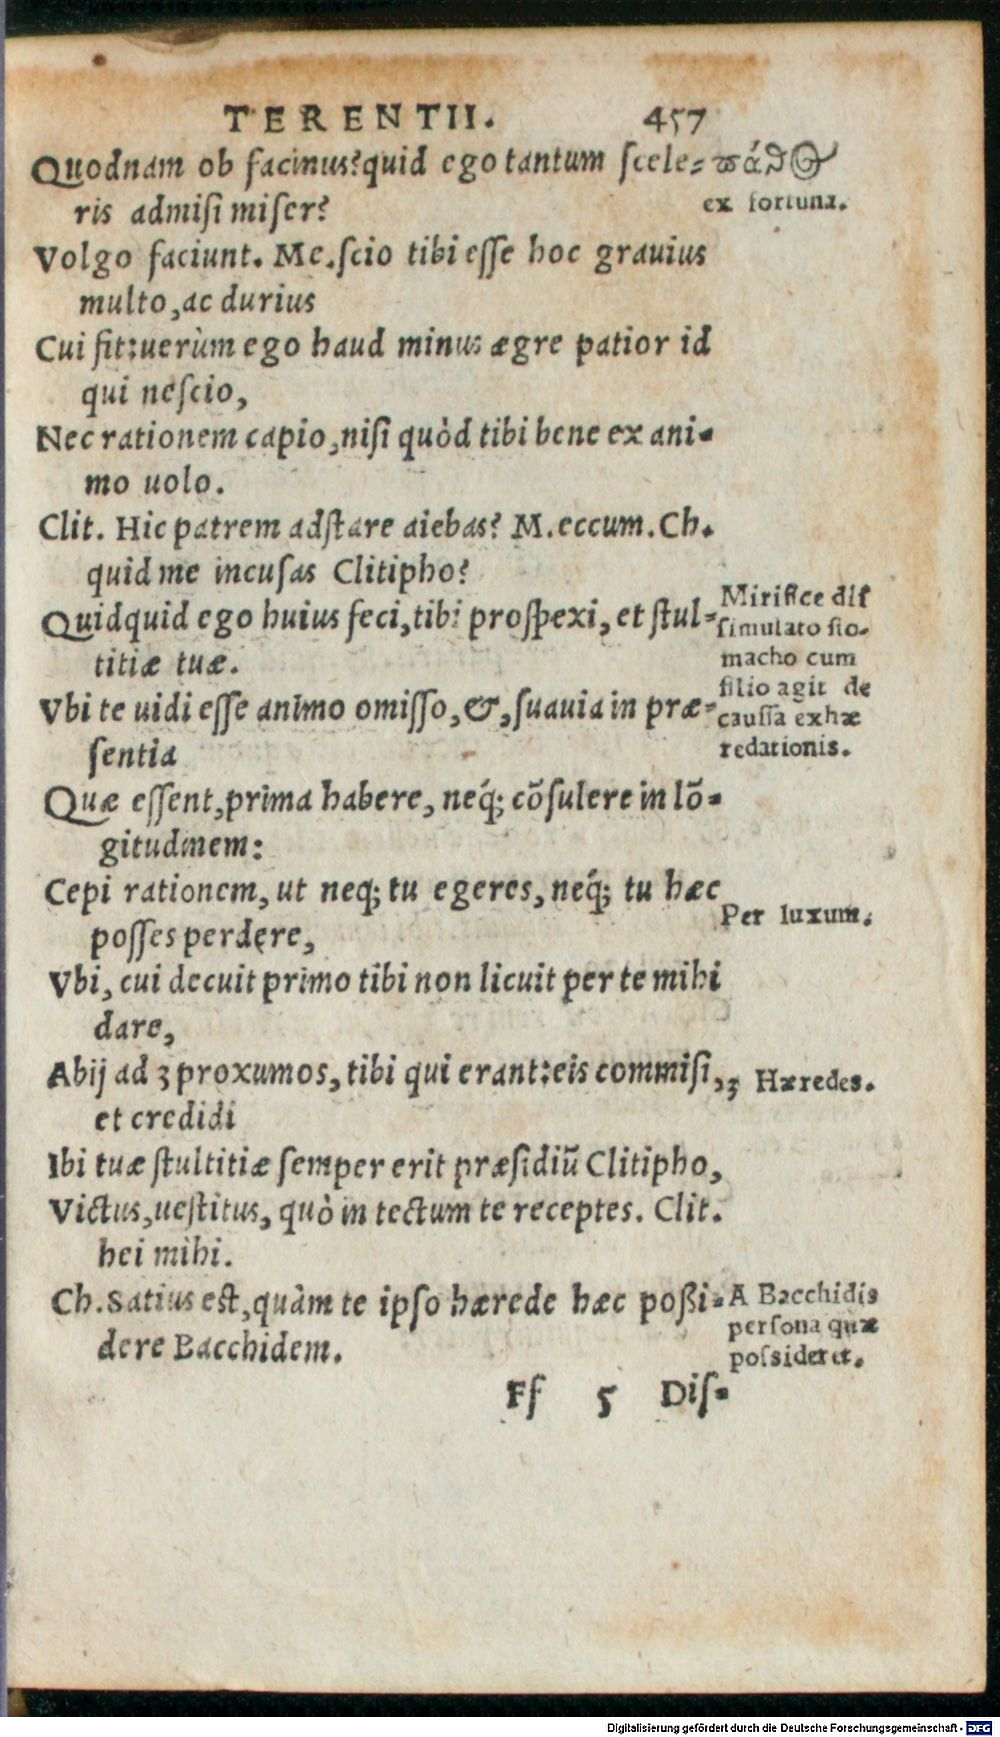 TERENTII. 457
Quodnam ob facinus?quid ego tantum scele⸗
ris admiſi miſer?
πάθος
ex fortuna.
Volgo faciunt. Me.ſcio tibi eſſe hoc grauius
multo,ac durius
Cui fit:uerùm ego haud minus ægre patior id
qui neſcio,
Nec rationem capio,niſi quòd tibi bene ex ani⸗
mo uolo.
Clit. Hic patrem adſtare aiebas? M.eccum.Ch.
quid me incuſas Clitipho?
Quidquid ego huius feci,tibi proſpexi, et ſtul⸗
titiæ tuæ.
Vbi te uidi eſſe animo omiſſo,&,ſuauia in præ⸗
ſentia
Mirifice diſ
ſimulato ſto⸗
macho cum
filio agit de
cauſſa exhæ
redationis.
Quæ eſſent,prima habere, neq́; cõſulere in lõ⸗
gitudinem:
Cepi rationem, ut neq; tu egeres, neq́; tu hæc
poſſes perdere,
Per luxum.
Vbi, cui decuit primo tibi non licuit per te mihi
dare,
Abij ad ʒ proxumos, tibi qui erant:eis commiſi,
et credidi
ʒ Hæredes.
Ibi tuæ ſtultitiæ ſemper erit præſidiũ Clitipho,
Victus,ueſtitus, quò in tectum te receptes. Clit.
hei mihi.
Ch. Satius eſt,quàm te ipſo hærede hæc poßi⸗
dere Bacchidem.
A Bacchidis
perſona quæ
poſsideret.
Ff 5 Diſ⸗
Digitalisierung gefördert durch die Deutsche Forschungsgemeinschaft - DFG